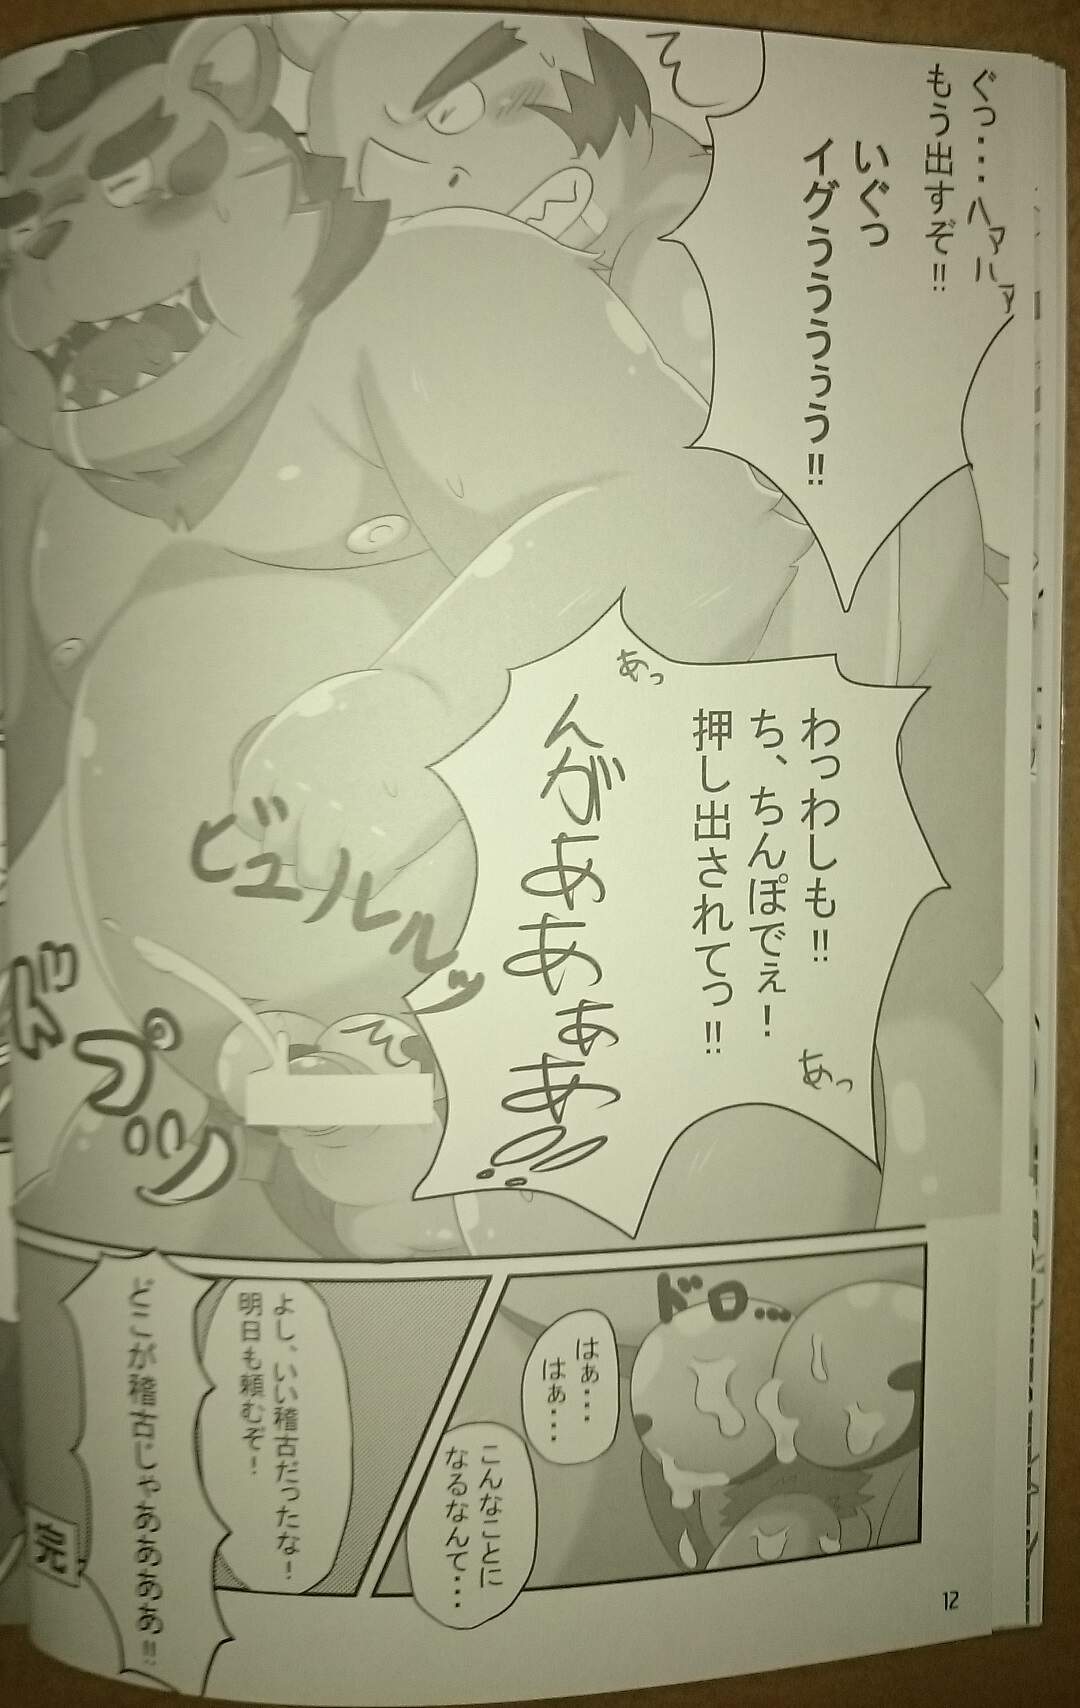 ぐっ・・・ハァハァ
もう出すぞ!!
いぐっ
イグぅうううぅう!!
わっわしも!!
ち、ちんぽでぇ!
押し出されてっ!!
あっ
あっ
んがあああぁあ!!
ビュルルルッ
ズプッ
ドロ…
はぁ・・・
はぁ・・・
こんなことに
なるなんて・・・
よし、いい稽古だったな!
明日も頼むぞ!
どこが稽古じゃああああ!!
完
12